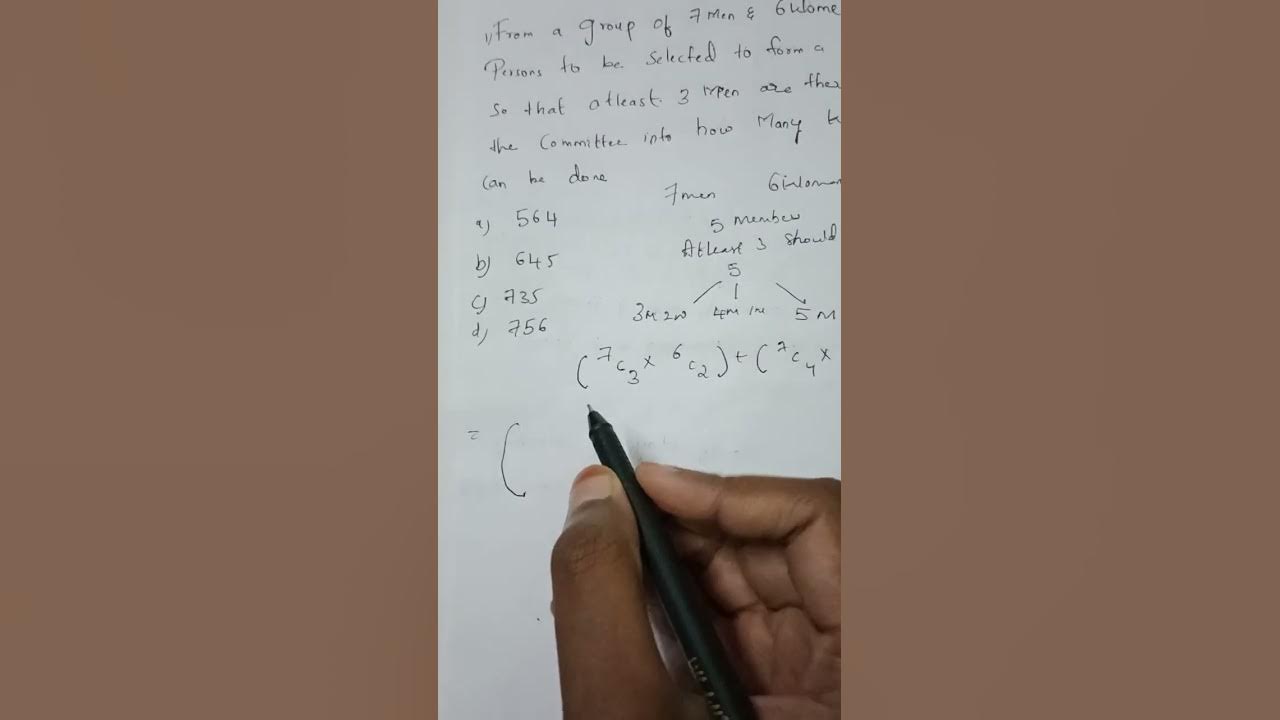 1) From a group of 7 Men & 6 Wome
Persons to be Selected to form a
So that atleast 3 men are ther
the Committee into how Many
Can be done
7men 6 Woman
a) 564
5 Member
Atleast 3 should
b) 645
5
c) 735
3M 2W 4M 1W 5M
d) 756
(⁷C₃ × ⁶C₂) + (⁷C₄ ×
= (